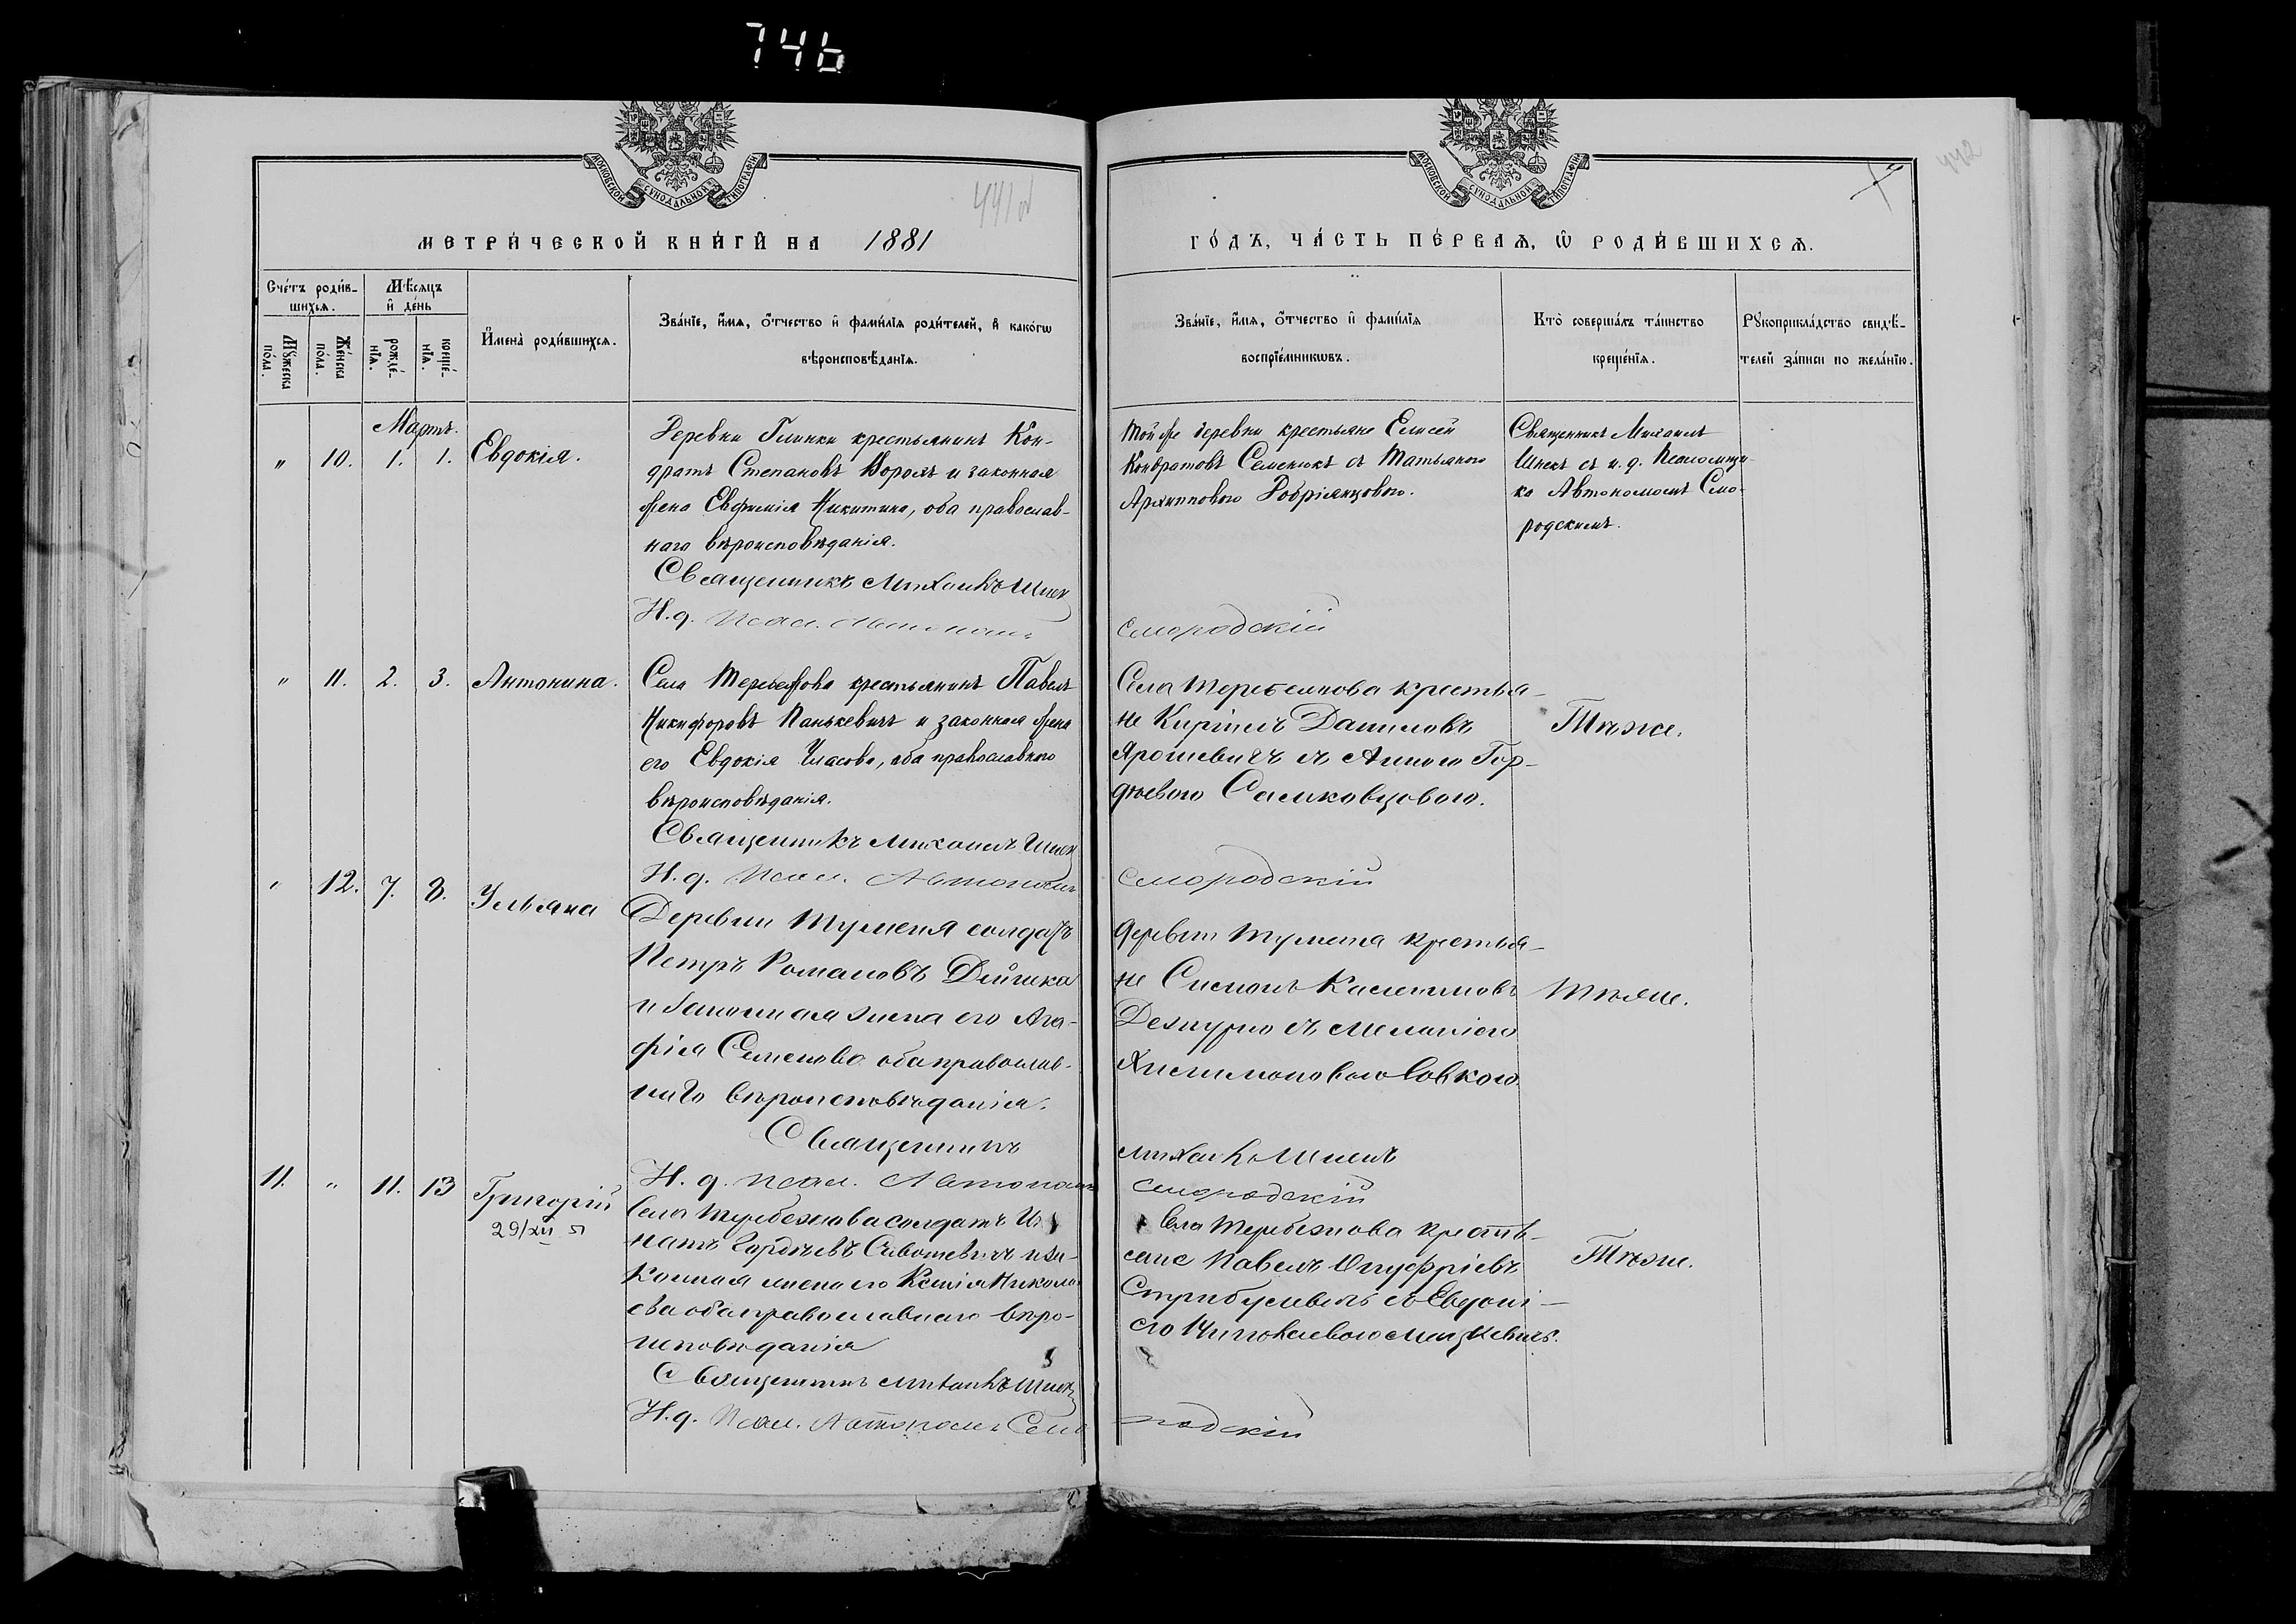 746
МОСКОВСКОЙ СУНОДАЛЬНОЙ ТИПОГРАФІИ
МОСКОВСКОЙ СУНОДАЛЬНОЙ ТИПОГРАФІИ
441
442
МЕТРИ́ЧЕСКОЙ КНИ́ГИ НА 1881
ГО́ДЪ, ЧА́СТЬ ПЕ́РВАѦ, Ѡ҆ РОДИ́ВШИХСѦ.
Сче́тъ роди́в-
шихсѧ.
Мѣ́сѧцъ
и҆ де́нь
Мꙋ́жеска
по́ла.
Же́нска
по́ла.
рожде́-
нїѧ.
креще́-
нїѧ.
И҆мена̀ роди́вшихсѧ.
Зва́нїе, и҆́мѧ, ѻ҆́тчество и҆ фамѝлїѧ роди́телей, и҆ како́гѡ
вѣроисповѣ́данїѧ.
Зва́нїе, и҆́мѧ, ѻ҆́тчество и҆ фамѝлїѧ
воспрїе́мникѡвъ.
Кто̀ соверша́лъ та́инство
креще́нїѧ.
Рꙋкоприкла́дство свидѣ́-
телей за́писи по жела́нїю.
Мартъ.
" 10. 1. 1. Евдокія.
Деревни Глинки крестьянинъ Кон-
дратъ Степановъ Король и законная
жена Евфимія Никитина, оба православ-
наго вѣроисповѣданія.
Священникъ Михаилъ Шпек
И. д. Псал. Автономъ
Той же деревни крестьяне Елисей
Кондратовъ Семенюкъ съ Татьяною
Архиповою Добріянцовою.
Смородскій
Священникъ Михаилъ
Шпекъ съ и. д. Псаломщи-
ка Автономомъ Смо-
родскимъ.
" 11. 2. 3. Антонина.
Села Теребежова крестьянинъ Павелъ
Никифоровъ Панькевичъ и законная жена
его Евдокія Власова, оба православного
вѣроисповѣданія.
Священникъ Михаилъ Шпек
И. д. Псал. Автономъ
Села Теребежова крестья-
не Кириллъ Даниловъ
Ярошевичъ съ Анною Гор-
дѣевою Самковцовою.
Смородскій
Тѣже.
" 12. 7. 8. Ульяна
Деревни Туменя солдатъ
Петръ Романовъ
и законная жена его Ага-
фія Семенова оба православ-
наго вѣроисповѣданія.
Священникъ
И. д. Псал. Автономъ
деревни Туменя крестья-
не
съ Меланіею
Михаилъ Шпекъ
Смородскій
Тѣже.
11. " 11. 13 Григорій
29/XII
Села Теребежова солдатъ Иг-
натъ Гордѣевъ и за-
конная жена его Ксенія Никола-
ева оба православнаго вѣро-
исповѣданія
Священникъ Михаилъ Шпек
И. д. Псал. Автономъ Смо
Села Теребежова крестья-
не Павелъ Онуфріевъ
съ Евдокі-
ею Мицкевичъ.
родскій
Тѣже.